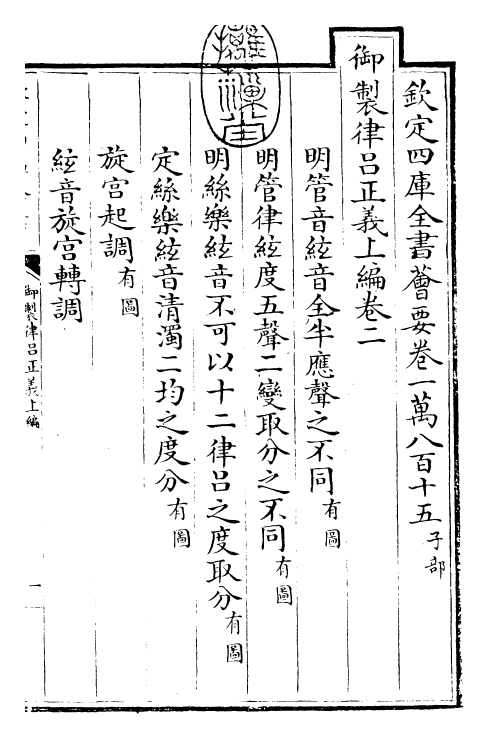 欽定四庫全書薈要卷一萬八百十五 子部
御製律呂正義上編卷二
明管音絃音全半應聲之不同 有圖
明管律絃度五聲二變取分之不同 有圖
明絲樂絃音不可以十二律呂之度取分 有圖
定絲樂絃音清濁二均之度分 有圖
旋宮起調 有圖
絃音旋宮轉調
御製律呂正義上編
一